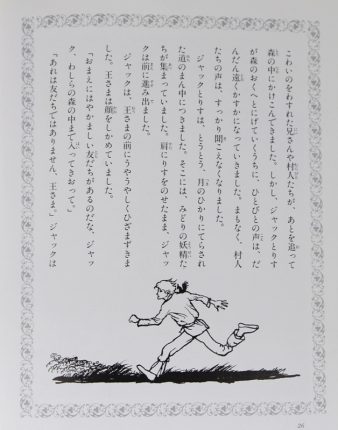 こわいのをわすれた兄さんや村人たちが、あとを追って
森の中にかけこんできました。しかし、ジャックとりす
が森のおくへとにげていくうちに、ひとびとの声は、だ
んだん遠くかすかになっていきました。まもなく、村人
たちの声は、すっかり聞こえなくなりました。
ジャックとりすは、とうとう、月のひかりにてらされ
た道のまん中につきました。そこには、みどりの妖精た
ちが集まっていました。肩にりすをのせたまま、ジャッ
クは前に進み出ました。
ジャックは、王さまの前にうやうやしくひざまずきま
した。王さまは顔をしかめていました。
「おまえにはやかましい友だちがあるのだな、ジャッ
ク、わしらの森の中まで入ってきおって。」
「あれは友だちではありません、王さま」ジャックは
26